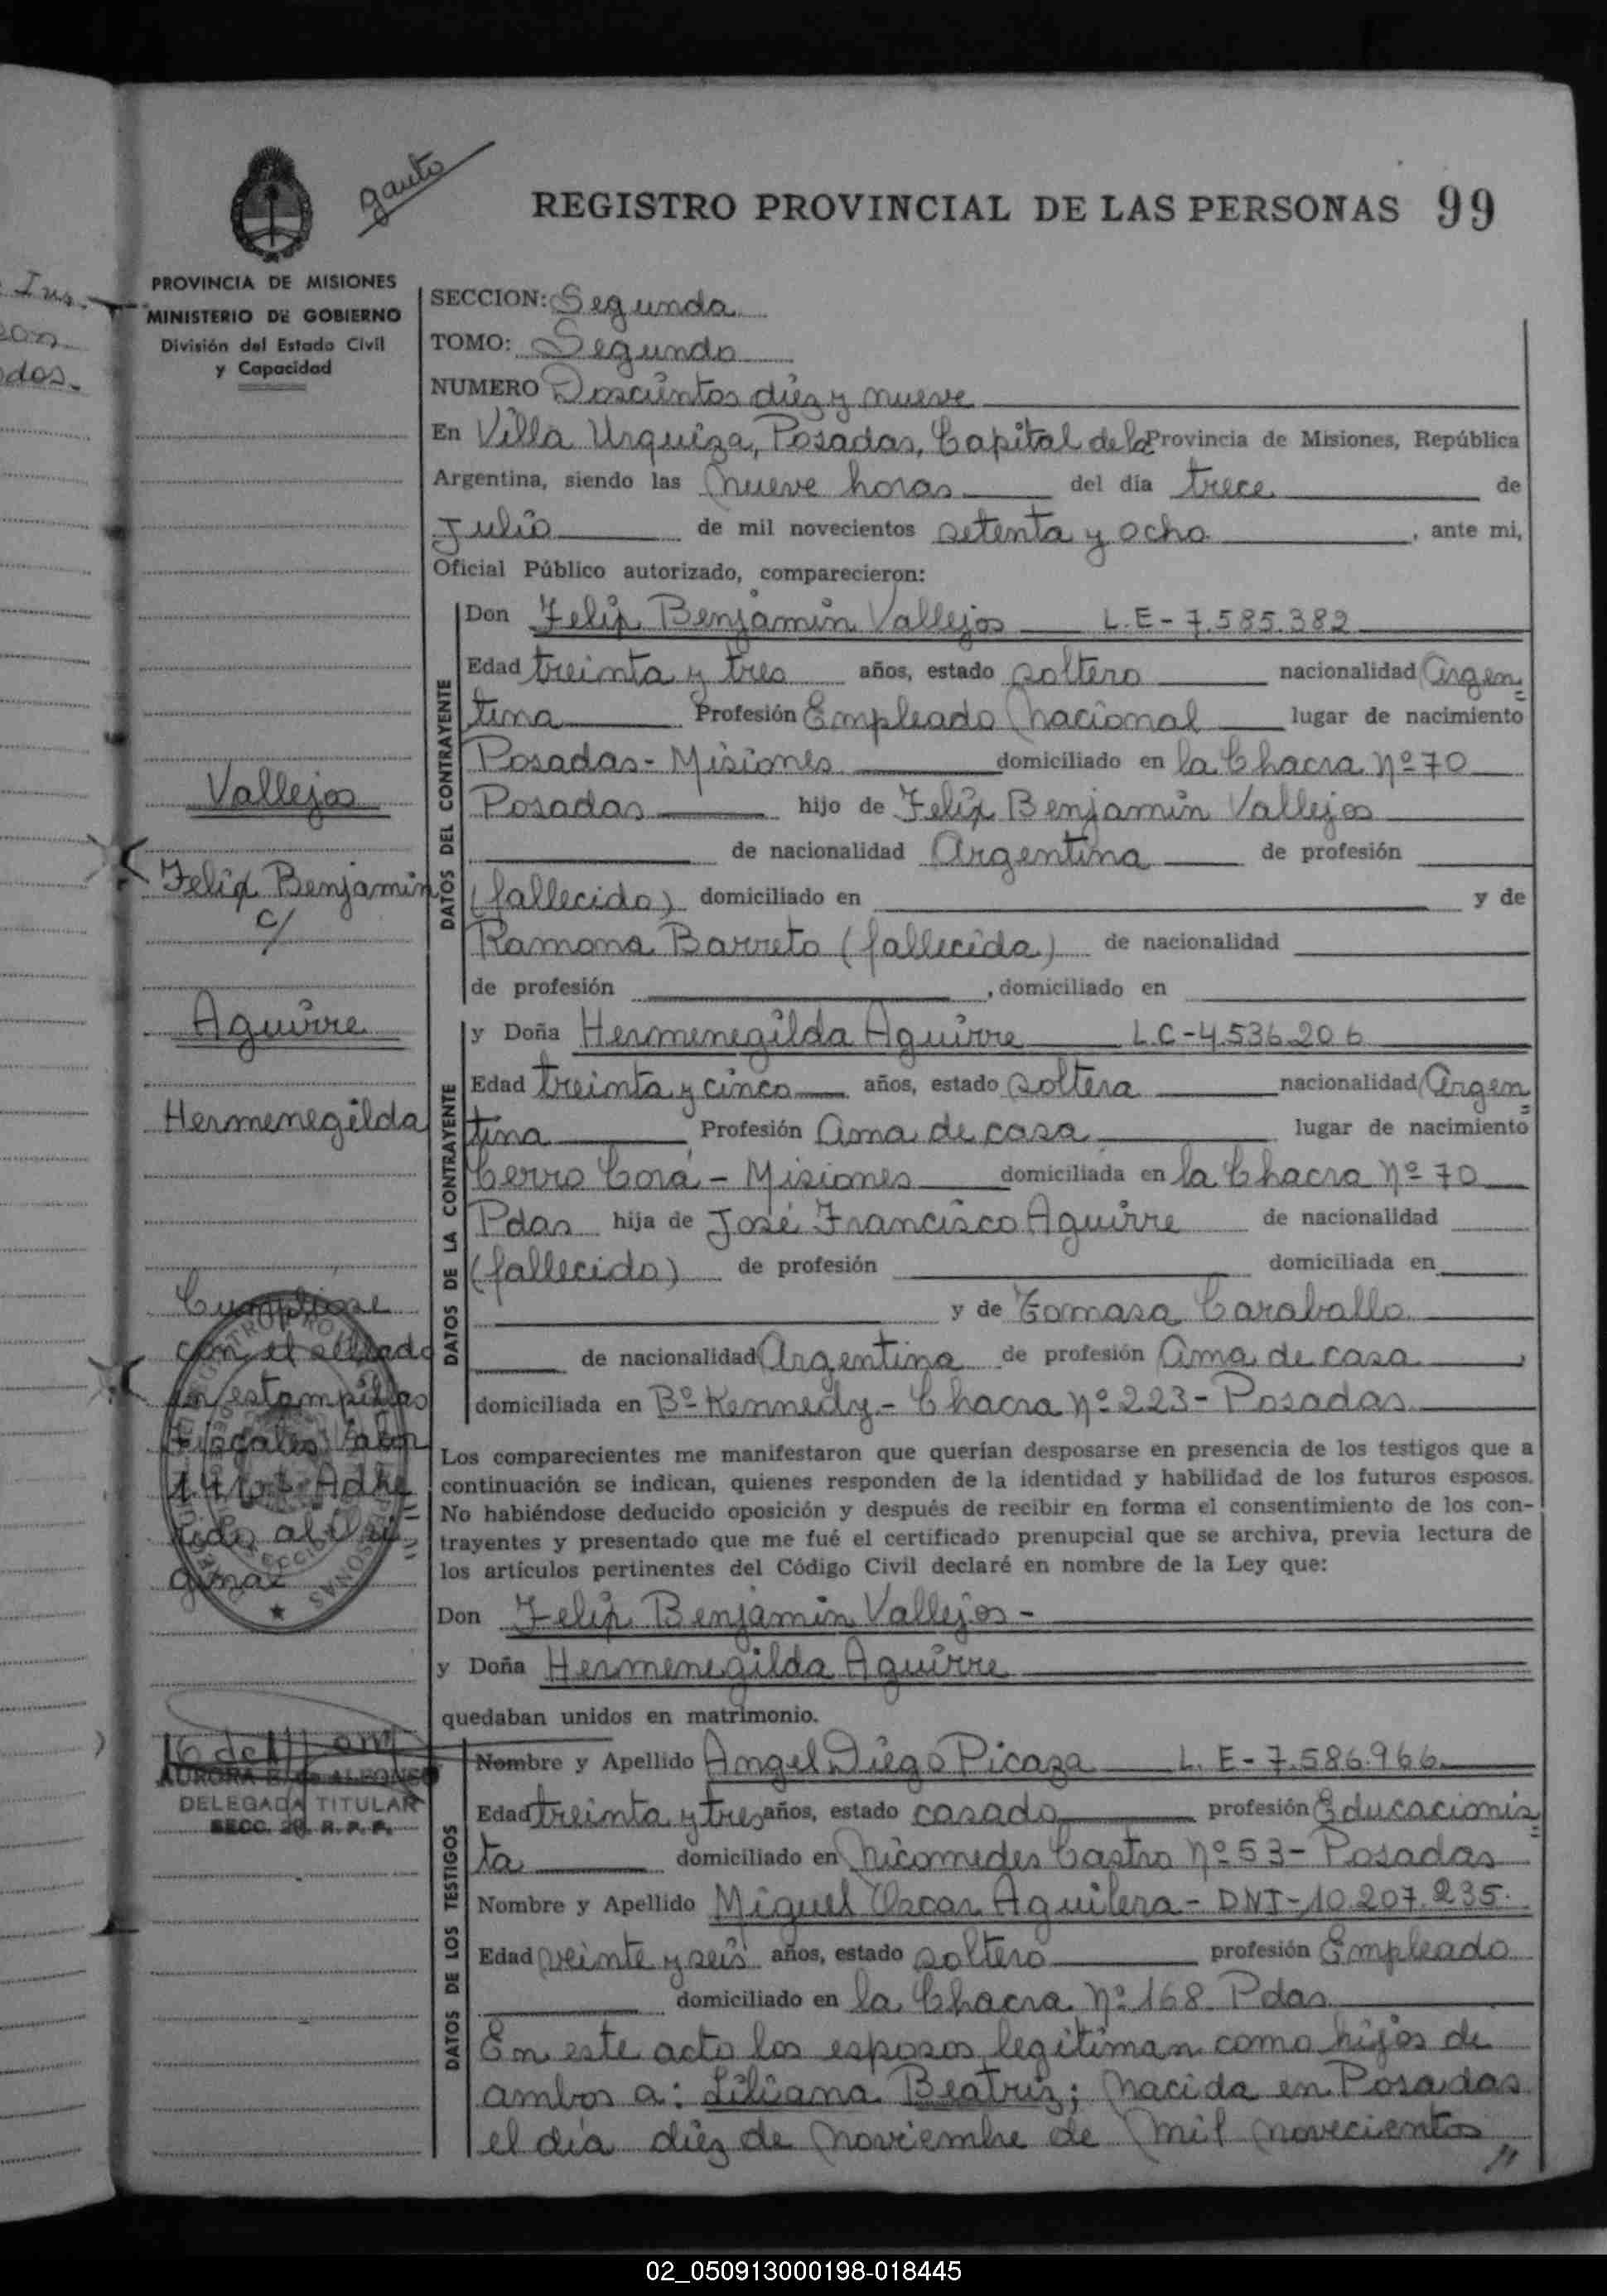 gauto
REGISTRO PROVINCIAL DE LAS PERSONAS 99
PROVINCIA DE MISIONES
MINISTERIO DE GOBIERNO
División del Estado Civil
y Capacidad
SECCION: Segunda
TOMO: Segundo
NUMERO Doscientos diez y nueve
En Villa Urquiza, Posadas, Capital de la Provincia de Misiones, República
Argentina, siendo las nueve horas del día trece de
Julio de mil novecientos setenta y ocho, ante mi,
Oficial Público autorizado, comparecieron:
DATOS DEL CONTRAYENTE
Don Felix Benjamin Vallejos L.E-7.585.382
Edad treinta y tres años, estado soltero nacionalidad Argen=
tina Profesión Empleado Nacional lugar de nacimiento
Posadas-Misiones domiciliado en la Chacra Nº 70
Posadas hijo de Felix Benjamin Vallejos
de nacionalidad Argentina de profesión
(fallecido) domiciliado en y de
Ramona Barreto (fallecida) de nacionalidad
de profesión , domiciliado en
DATOS DE LA CONTRAYENTE
y Doña Hermenegilda Aguirre L.C-4.536.206
Edad treinta y cinco años, estado soltera nacionalidad Argen=
tina Profesión Ama de casa lugar de nacimiento
Cerro Corá - Misiones domiciliada en la Chacra Nº 70
Pdas hija de José Francisco Aguirre de nacionalidad
(fallecido) de profesión domiciliada en
y de Tomasa Caraballo
de nacionalidad Argentina de profesión Ama de casa,
domiciliada en Bº Kennedy - Chacra Nº 223 - Posadas
Los comparecientes me manifestaron que querían desposarse en presencia de los testigos que a
continuación se indican, quienes responden de la identidad y habilidad de los futuros esposos.
No habiéndose deducido oposición y después de recibir en forma el consentimiento de los con-
trayentes y presentado que me fué el certificado prenupcial que se archiva, previa lectura de
los artículos pertinentes del Código Civil declaré en nombre de la Ley que:
Don Felix Benjamin Vallejos -
y Doña Hermenegilda Aguirre
quedaban unidos en matrimonio.
DATOS DE LOS TESTIGOS
Nombre y Apellido Angel Diego Picaza L.E-7.586.966
Edad treinta y tres años, estado casado profesión Educacionis=
ta domiciliado en Nicomedes Castro Nº 53 - Posadas
Nombre y Apellido Miguel Oscar Aguilera - DNI-10.207.235
Edad veinte y seis años, estado soltero profesión Empleado
domiciliado en la Chacra Nº 168 Pdas
En este acto los esposos legitiman como hijos de
ambos a: Liliana Beatriz; nacida en Posadas
el día diez de noviembre de mil novecientos
//
Vallejos
Felix Benjamin
c/
Aguirre
Hermenegilda
Cumpliose
con el sellado
en estampillas
fiscales valor
Adhe
rido al Ori
ginal
AURORA E. de ALFONSO
DELEGADA TITULAR
SECC. 2ª. R. P. P.
02_050913000198-018445